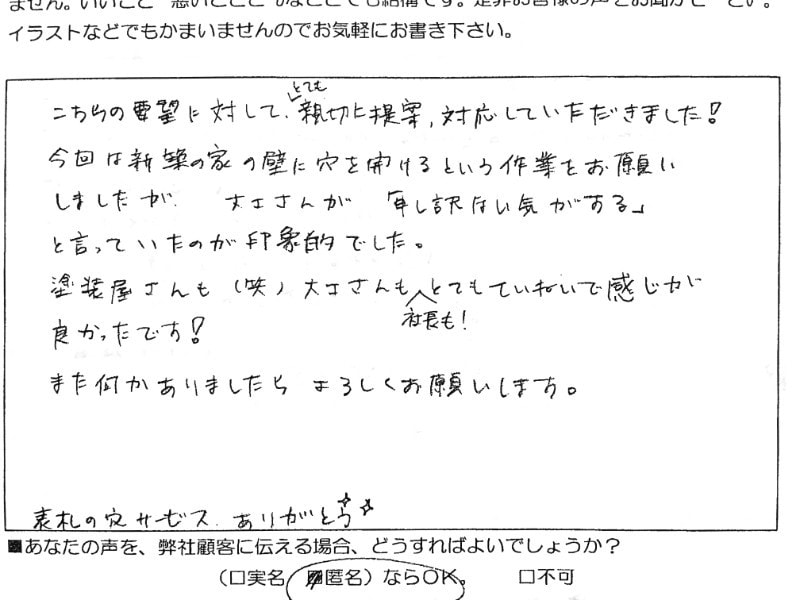 ません。いいこと
イラストなどでもかまいませんのでお気軽にお書き下さい。
こちらの要望に対して、とても親切に提案、対応していただきました!
今回は新築の家の壁に穴を開けるという作業をお願い
しましたが 大工さんが 「申し訳ない気がする」
と言っていたのが印象的でした。
塗装屋さんも(笑)大工さんも社長も!とてもていねいで感じが
良かったです!
また何かありましたら よろしくお願いします。
表札の穴サービス ありがとう
■あなたの声を、弊社顧客に伝える場合、どうすればよいでしょうか?
(□実名 匿名)ならOK。 □不可